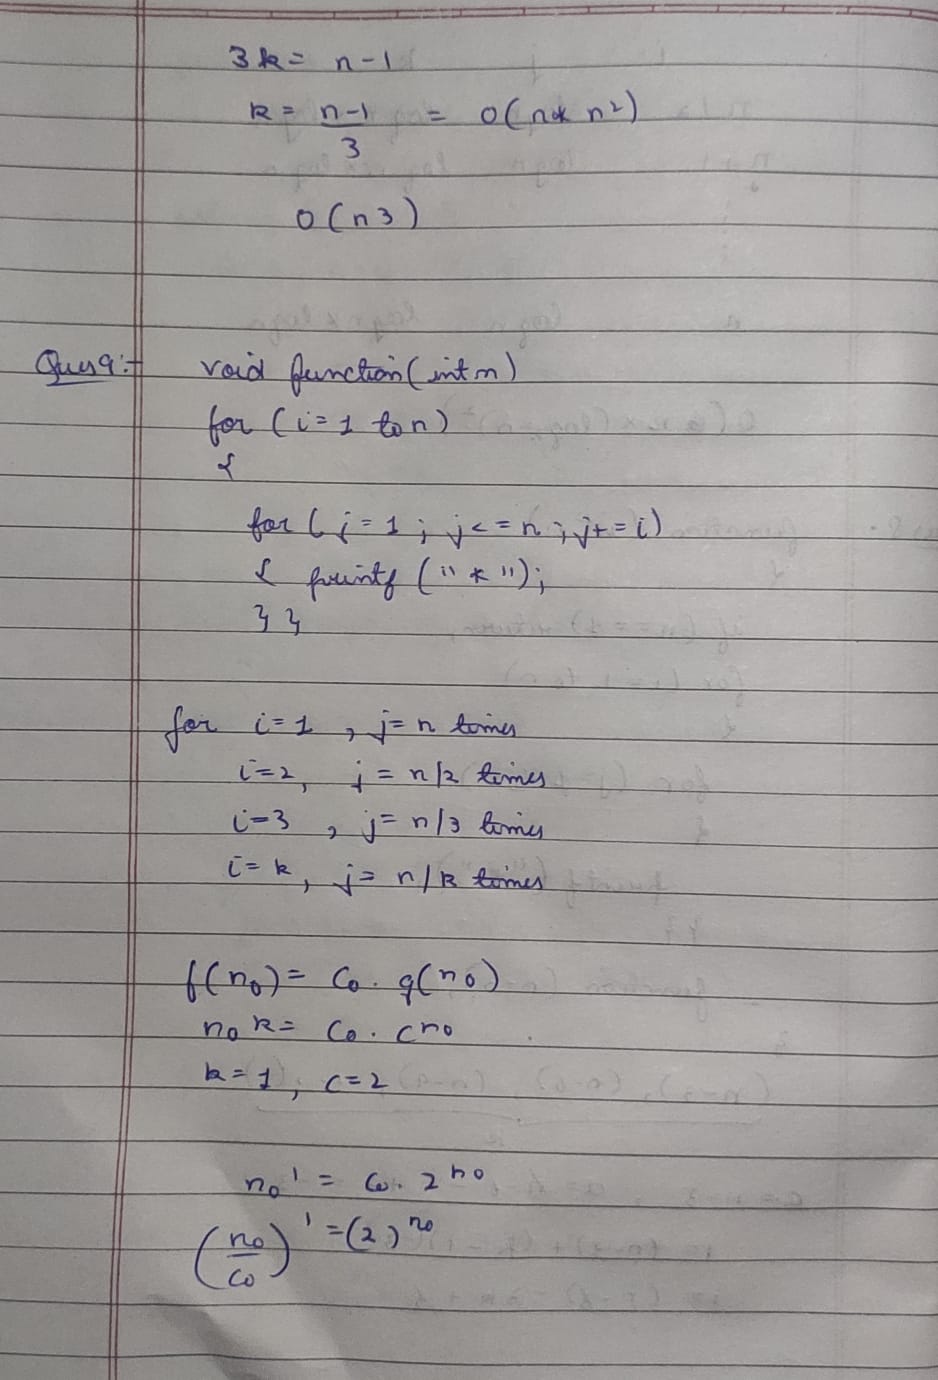 3k = n-1
k = n-1 = O(n* n²)
3
O(n3)
Ques 9:-
void function(int n)
for (i=1 to n)
{
for (j=1; j<=n; j+=i)
{ printf ("*");
} }
for i=1, j=n times
i=2, j=n/2 times
i=3, j=n/3 times
i=k, j=n/k times
f(n₀) = C₀. g(n₀)
n₀ k = C₀. Cⁿ⁰
k=1, C=2
n₀¹ = C₀. 2ⁿ⁰
(n₀/C₀)¹ = (2)ⁿ⁰